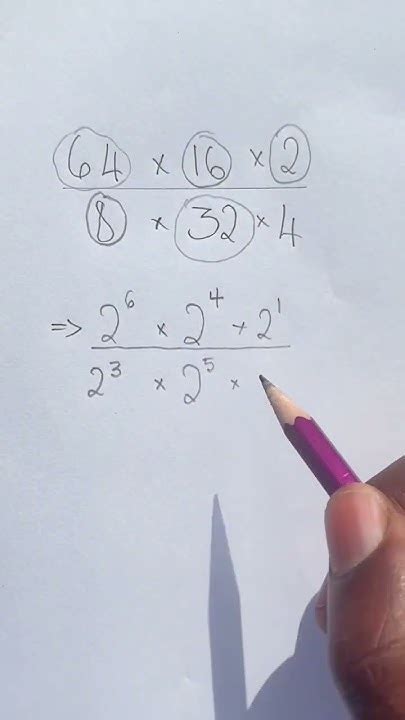 64 × 16 × 2
8 × 32 × 4
⇒ 2⁶ × 2⁴ + 2¹
2³ × 2⁵ ×